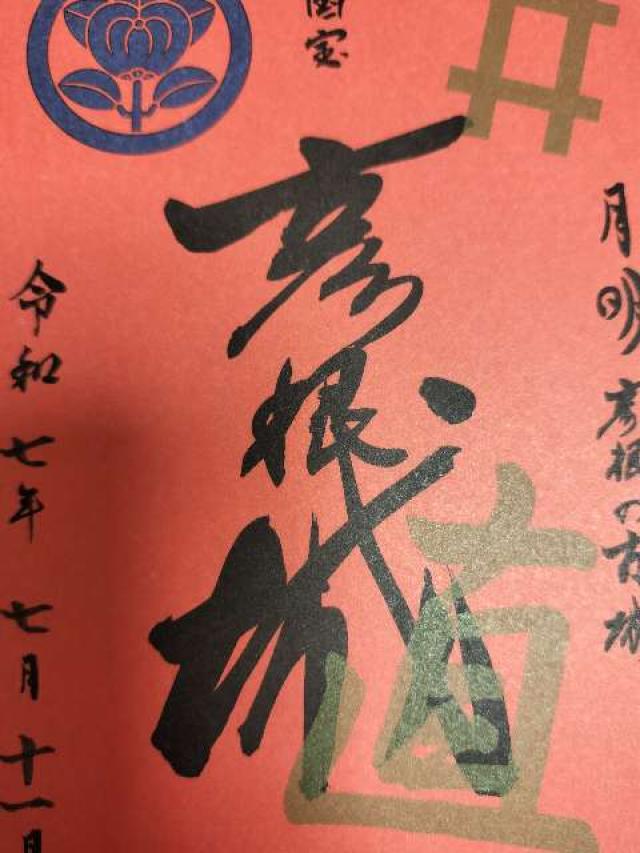 井
月明 彦根の古城
国宝
彦根城
直
令和七年 七月十一日